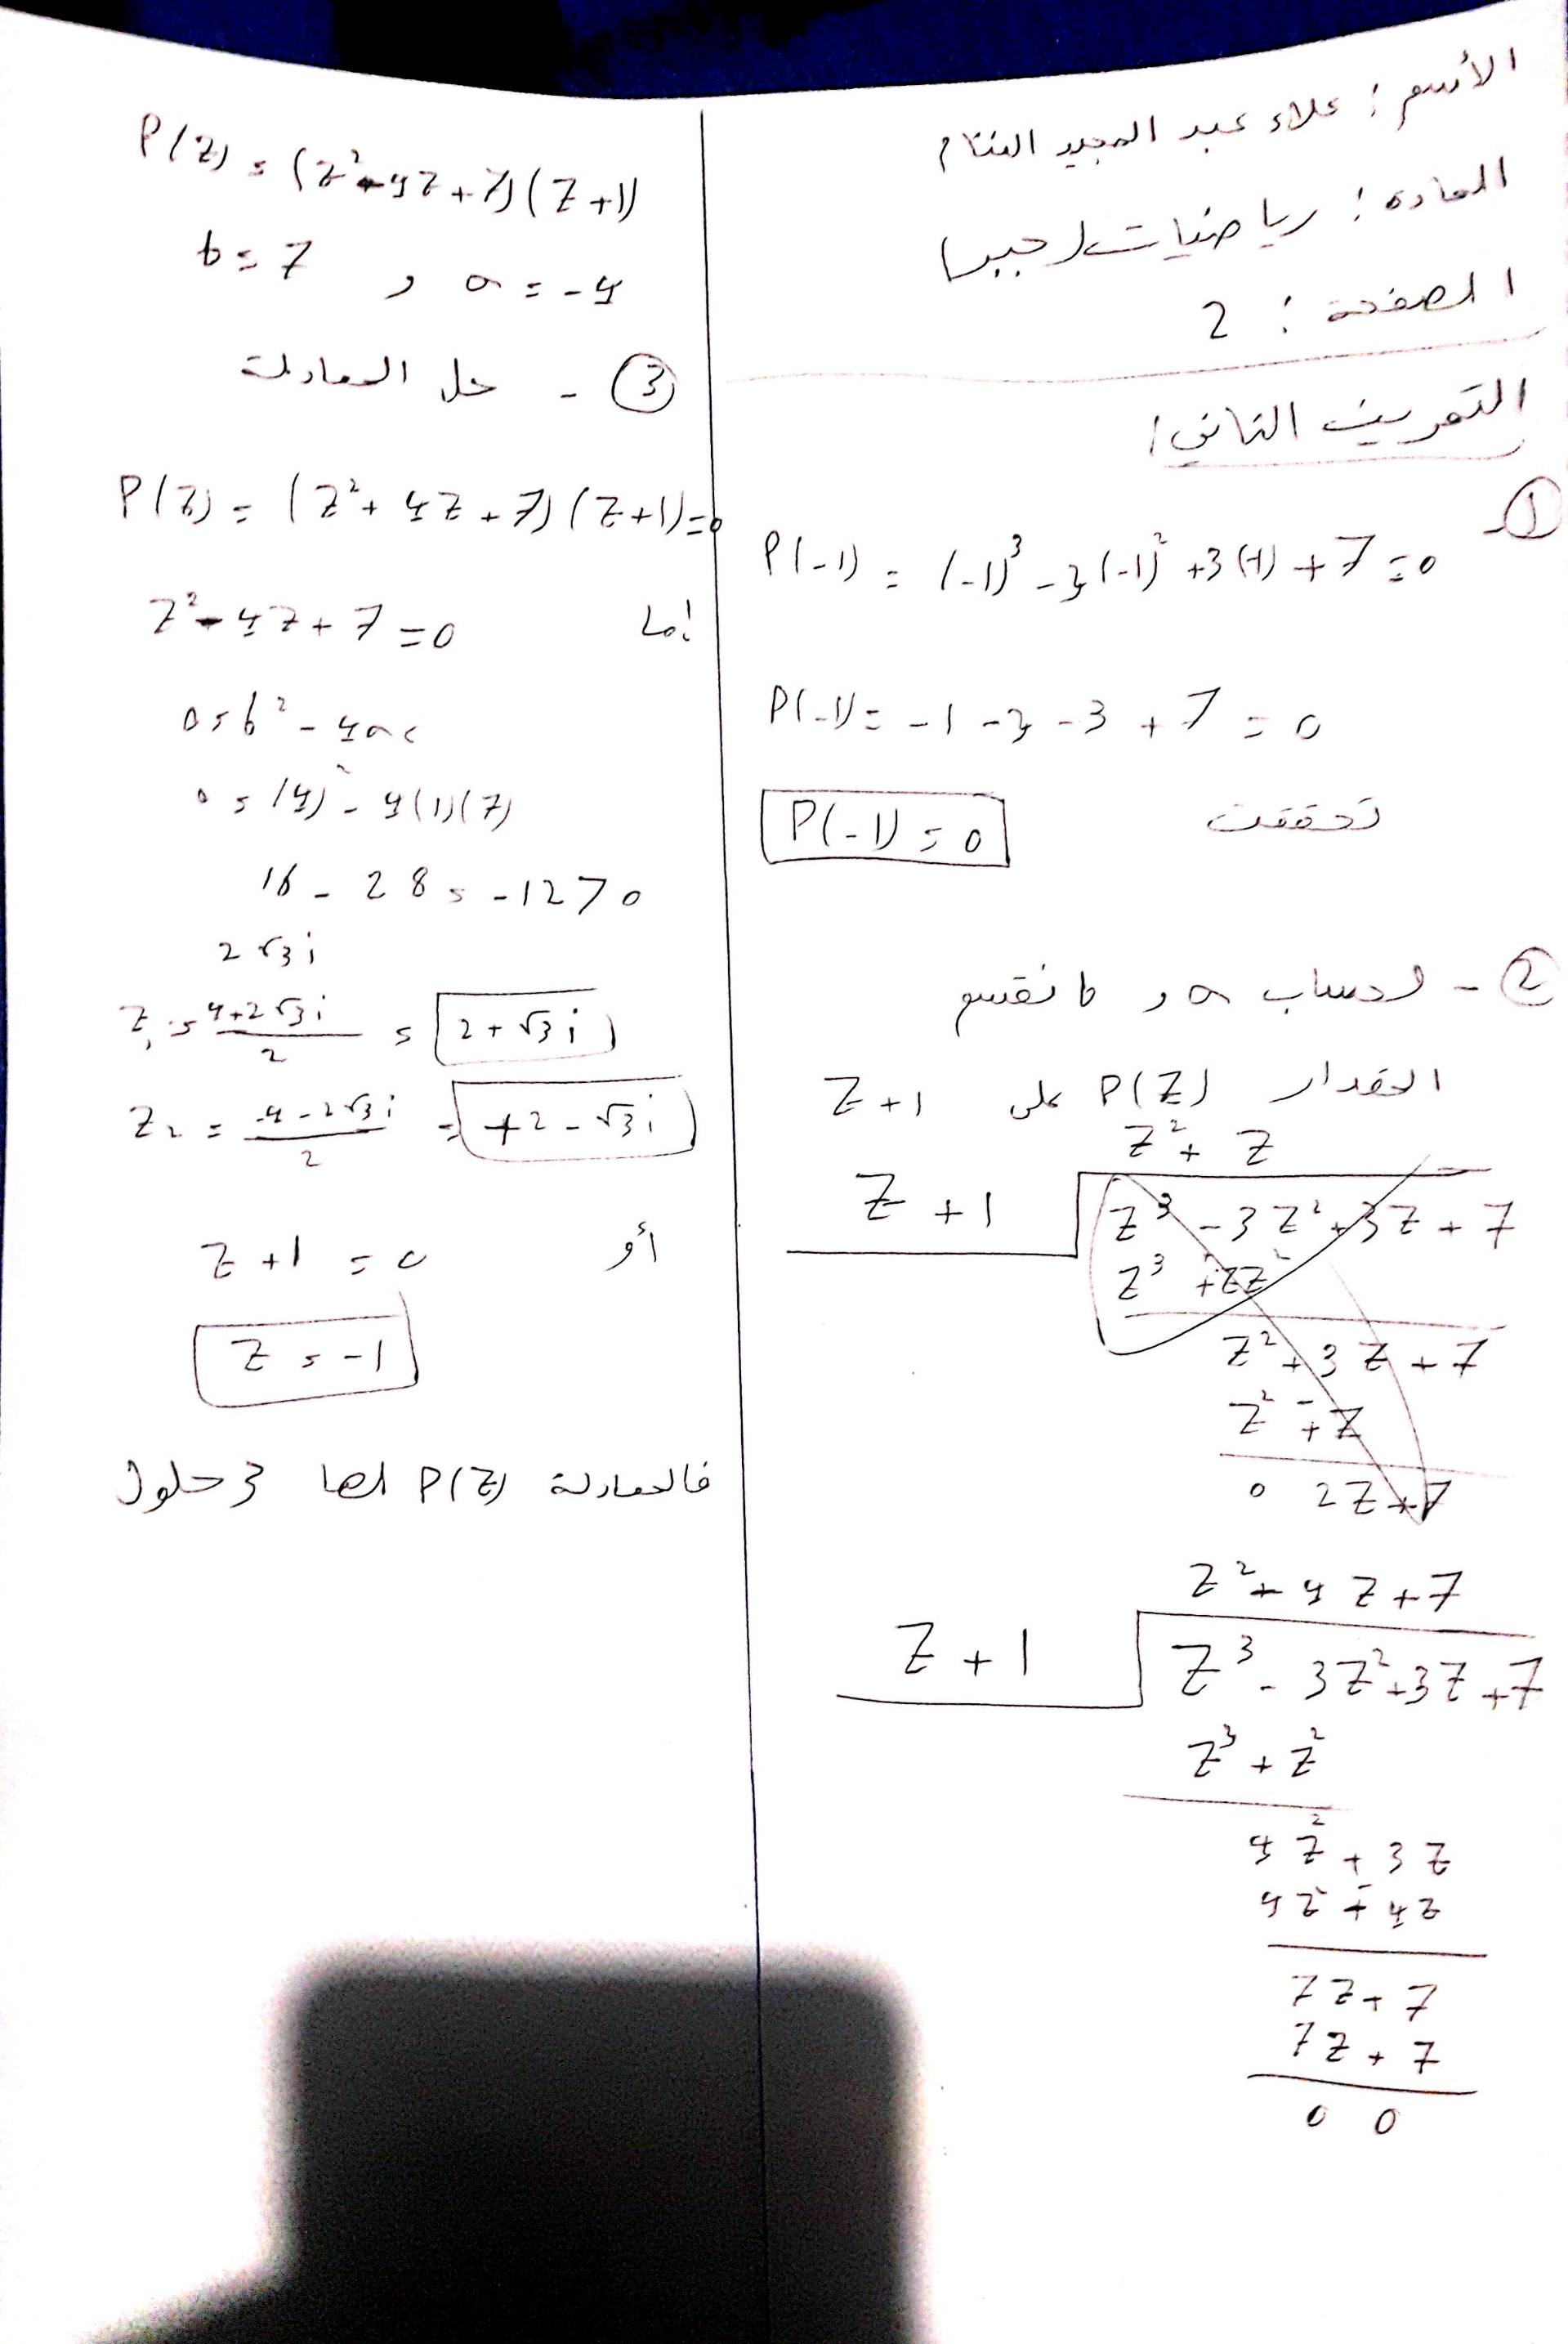 الأسم : علاء عبد المجيد
المادة : رياضيات (جبر)
الصفحة : 2
التمرين الثاني :
① -
P(-1) = (-1)³ - 3(-1)² + 3(-1) + 7 = 0
P(-1) = -1 - 3 - 3 + 7 = 0
تحققت P(-1) = 0
② - لحساب a و b نقسم
المقدار P(Z) على Z+1
Z² + Z
Z + 1
Z³ - 3Z² + 3Z + 7
Z³
Z² + 3Z + 7
Z² + Z
0 2Z + 7
Z² + 4Z + 7
Z + 1
Z³ - 3Z² + 3Z + 7
Z³ + Z²
4Z² + 3Z
4Z² + 4Z
7Z + 7
7Z + 7
0 0
P(Z) = (Z² - 4Z + 7)(Z + 1)
b = 7 , a = -4
③ - حل المعادلة
P(Z) = (Z² + 4Z + 7)(Z+1) = 0
إما Z² - 4Z + 7 = 0
Δ = b² - 4ac
Δ = (4)² - 4(1)(7)
16 - 28 = -12 > 0
2√3 i
Z₁ = 4+2√3 i / 2 = 2 + √3 i
Z₂ = -4 - 2√3 i / 2 = +2 - √3 i
أو Z + 1 = 0
Z = -1
فالمعادلة P(Z) لها 3 حلول